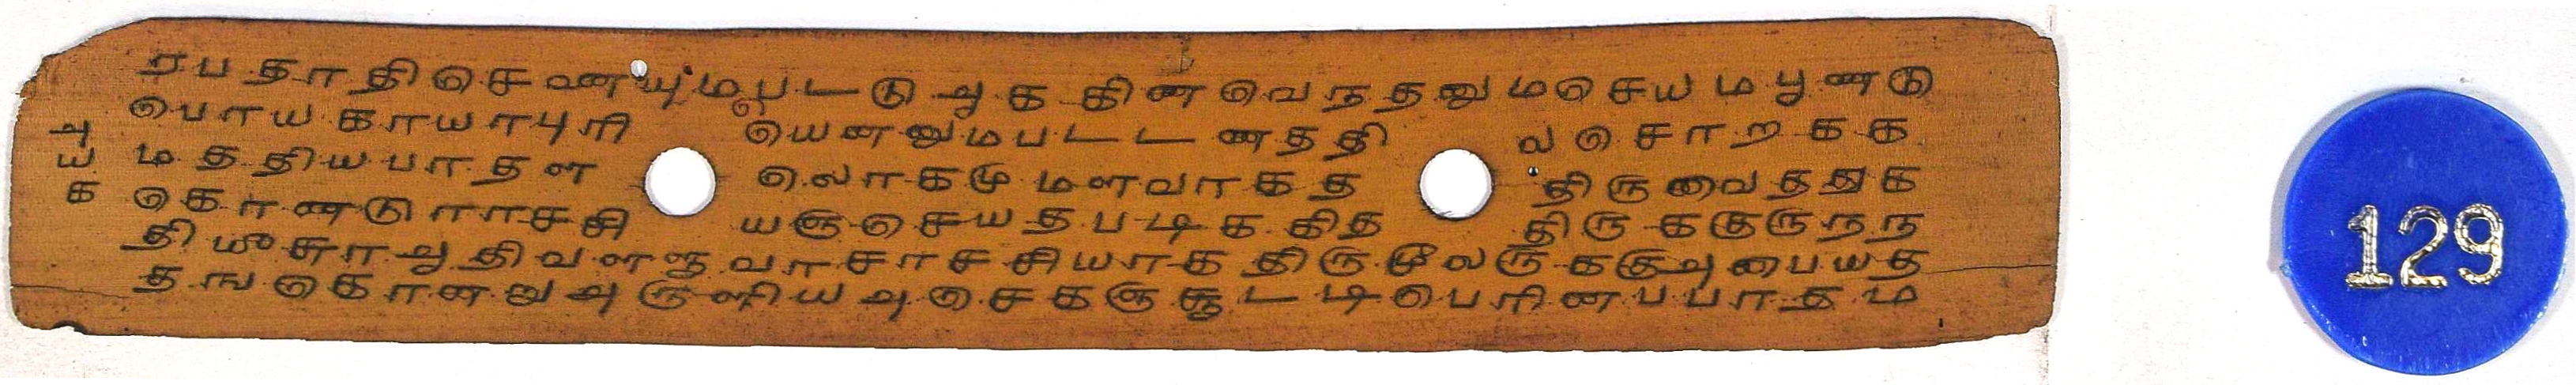 ரபதாதிசெணயுமபடடுஆககினவெநதனுமசெயமபூணடு
பொயகாயாபுரி யெனனுமபடடணததி லசொறகக
மததியபாதள லொகமு மளவாகத திருவைதததுக
கொணடுராசசி யஞசெயதபடிககித திருககுருநந
திமூசராஆதிவளளுவாசாசசியாக திருமூலருககுஅபையத
தஙகொனறுஅருளியஅசெகஞசூடடிபெரினபபாதம
அ
ய
க
129